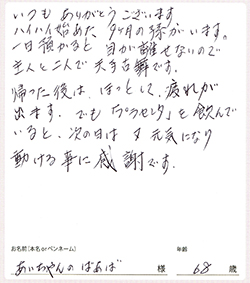 いつも ありがとうございます。
ハイハイ始めた 9ヶ月の孫がいます。
一日預かると 目が離せないので
主人と二人で 大手古舞です。
帰った後は、ほっとして、疲れが
出ます。でも「プラセンタ」を飲んで
いると、次の日は 又 元気になり
動ける事に感謝です。
お名前(本名 or ペンネーム) 年齢
あいちゃんの ばあば 様 68 歳